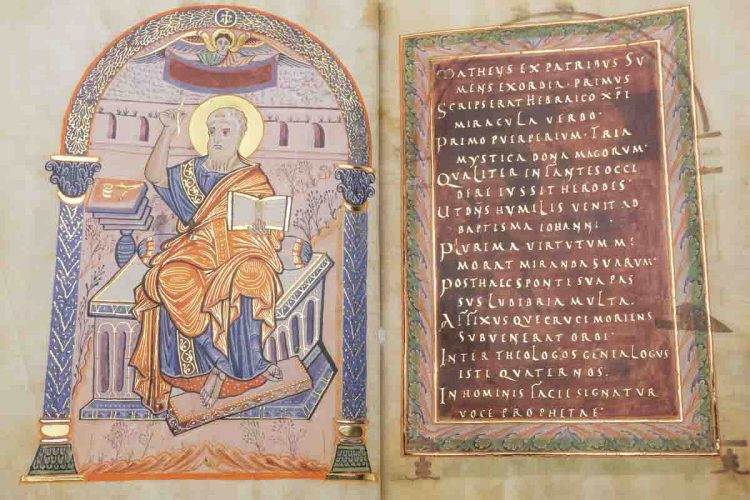 MATHEUS EX PATRIBUS SU
MENS EXORDIA PRIMUS
SCRIPSERAT HEBRAICO XPI
MIRACULA VERBO·
PRIMO PUERPERIUM· TRIA
MYSTICA DONA MAGORUM·
QUALITER INFANTES OCCI
DERE IUSSIT HERODES·
UT DNS HUMILIS VENIT AD
BAPTISMA IOHANNI·
PLURIMA VIRTUTUM ME
MORAT MIRANDA SUARUM·
POST HAEC SPONTE SUA PAS
SUS LUDIBRIA MULTA·
AFFIXUS QUE CRUCI MORIENS
SUBVENERAT ORBI·
INTER THEOLOGOS GENEALOGUS
ISTE QUATERNOS·
IN HOMINIS FACIE SIGNATUR
VOCE PROPHETAE·